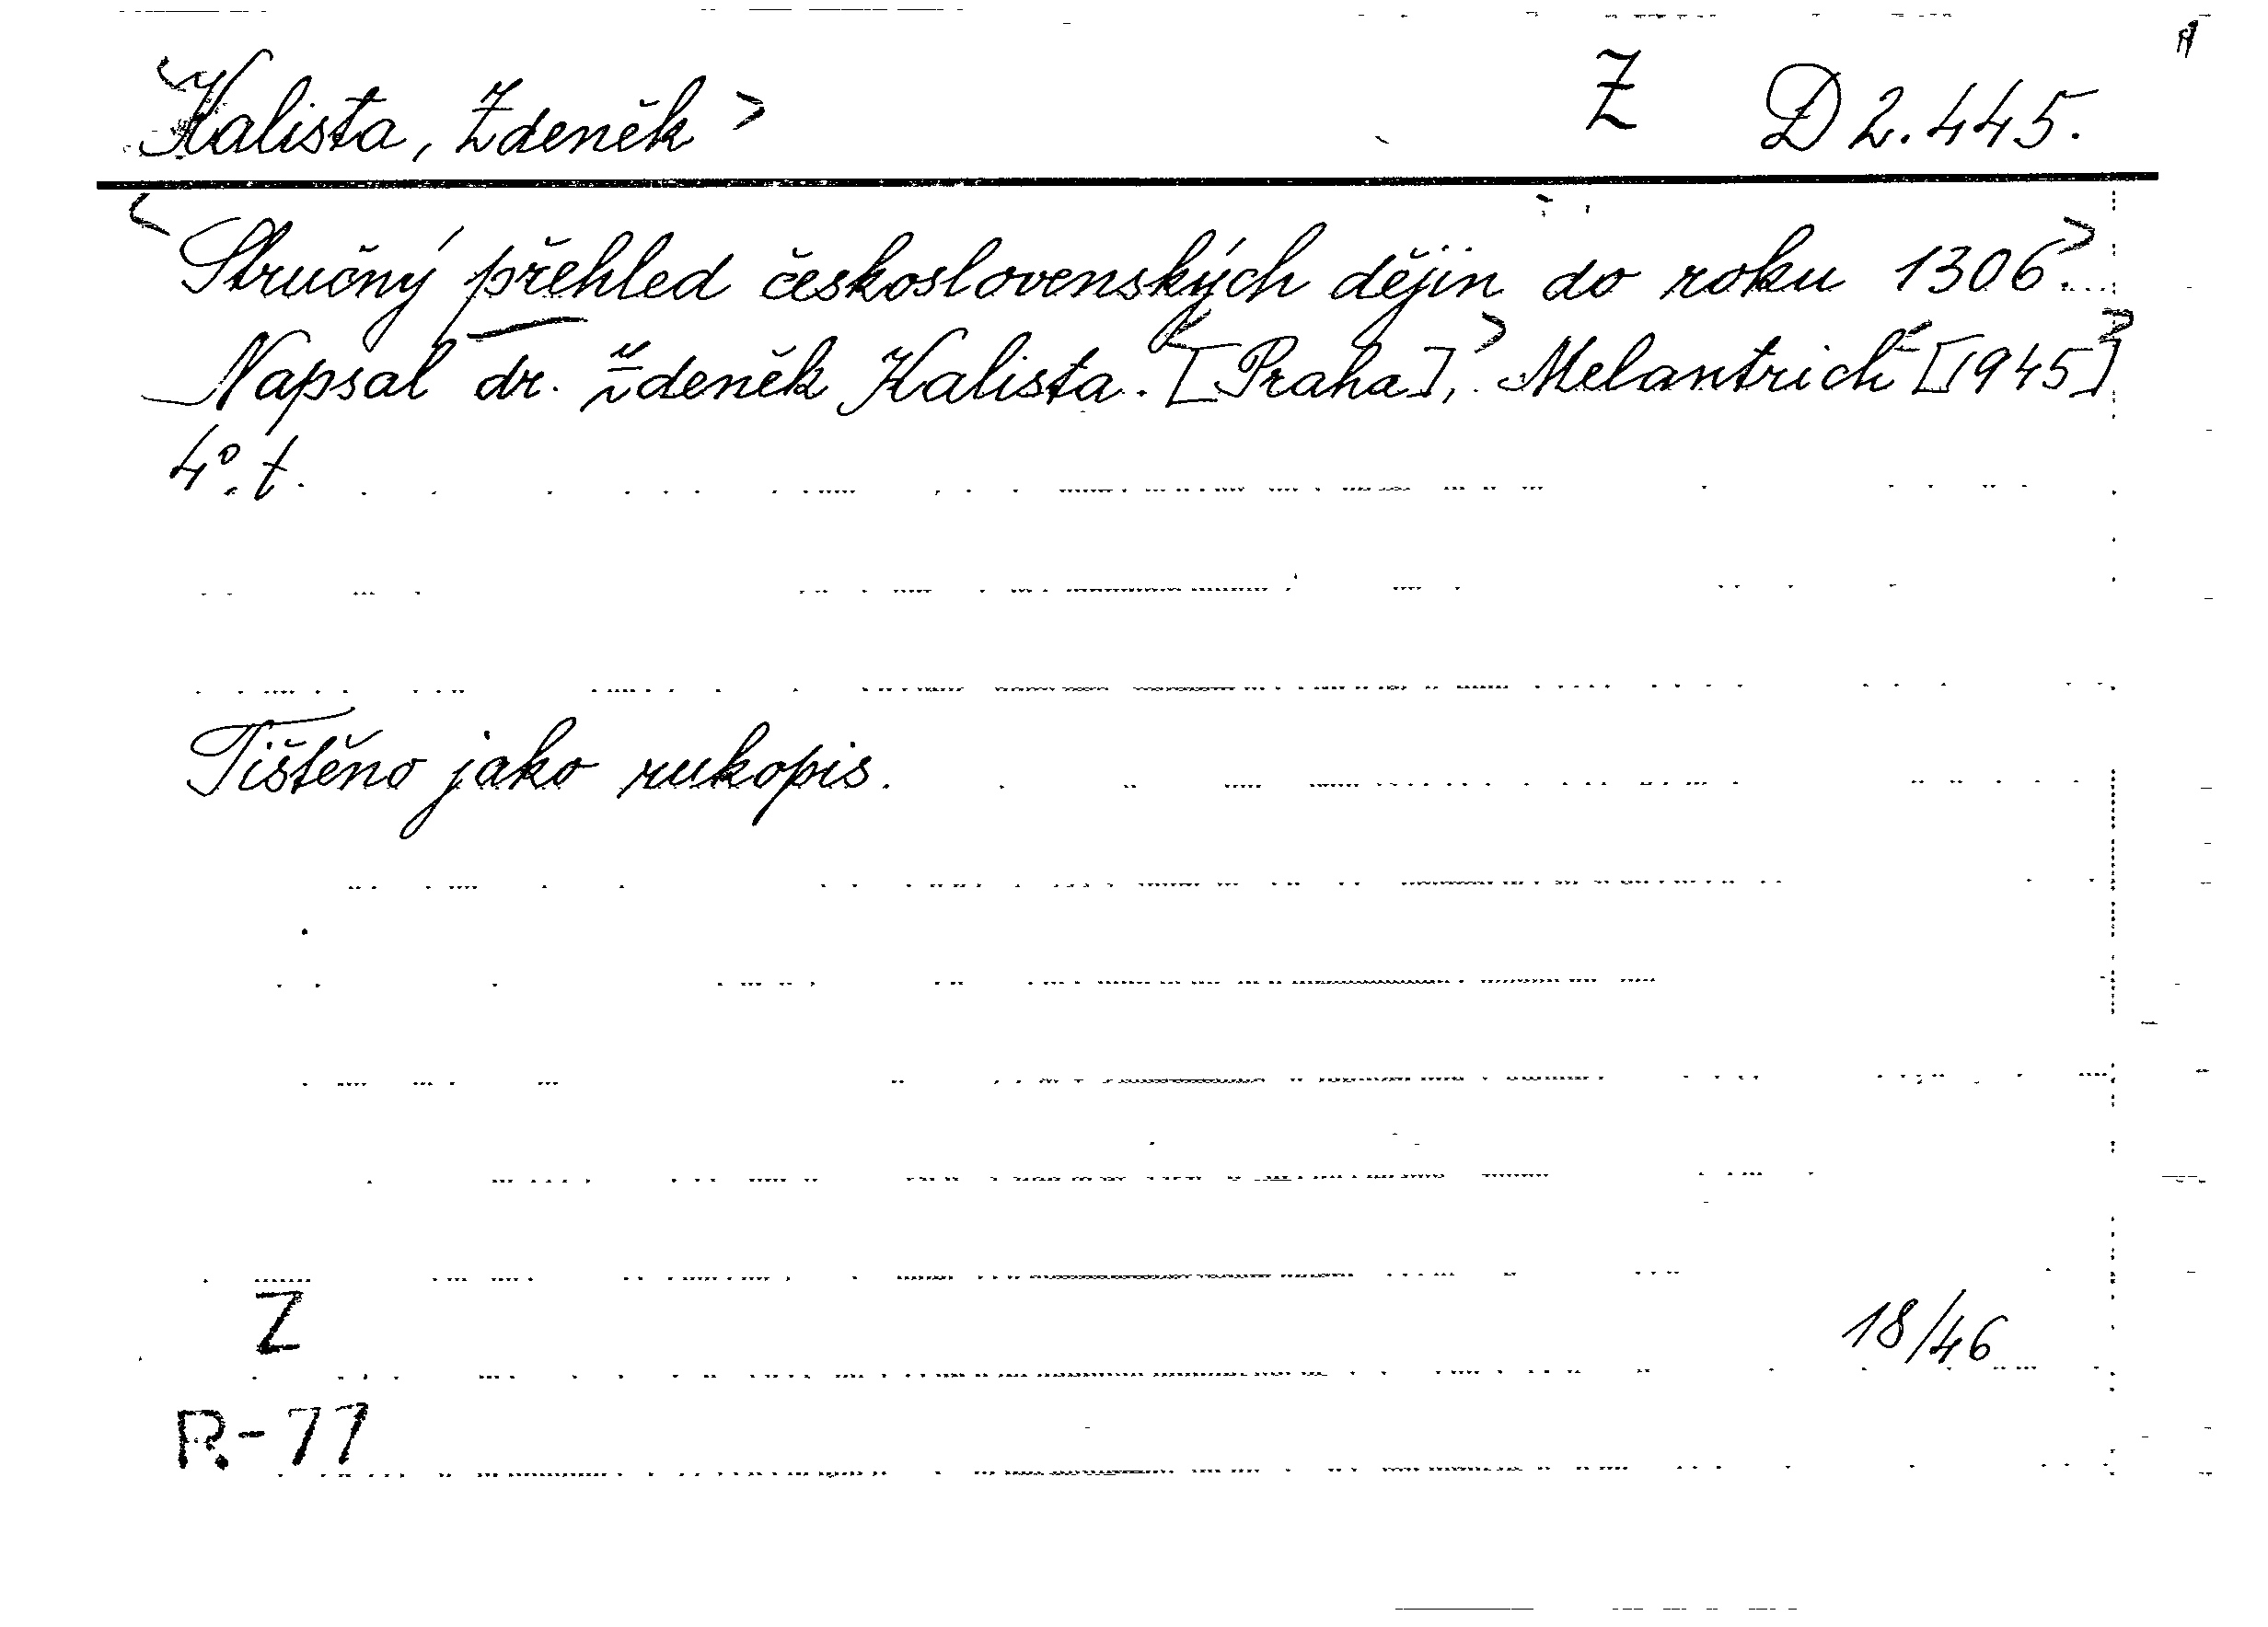 Kalista, Zdeněk Z D 2.445.
Stručný přehled československých dějin do roku 1306.
Napsal dr. Zdeněk Kalista. [Praha], Melantrich [1945]
4°. t.
Tištěno jako rukopis.
Z
18/46
R-77